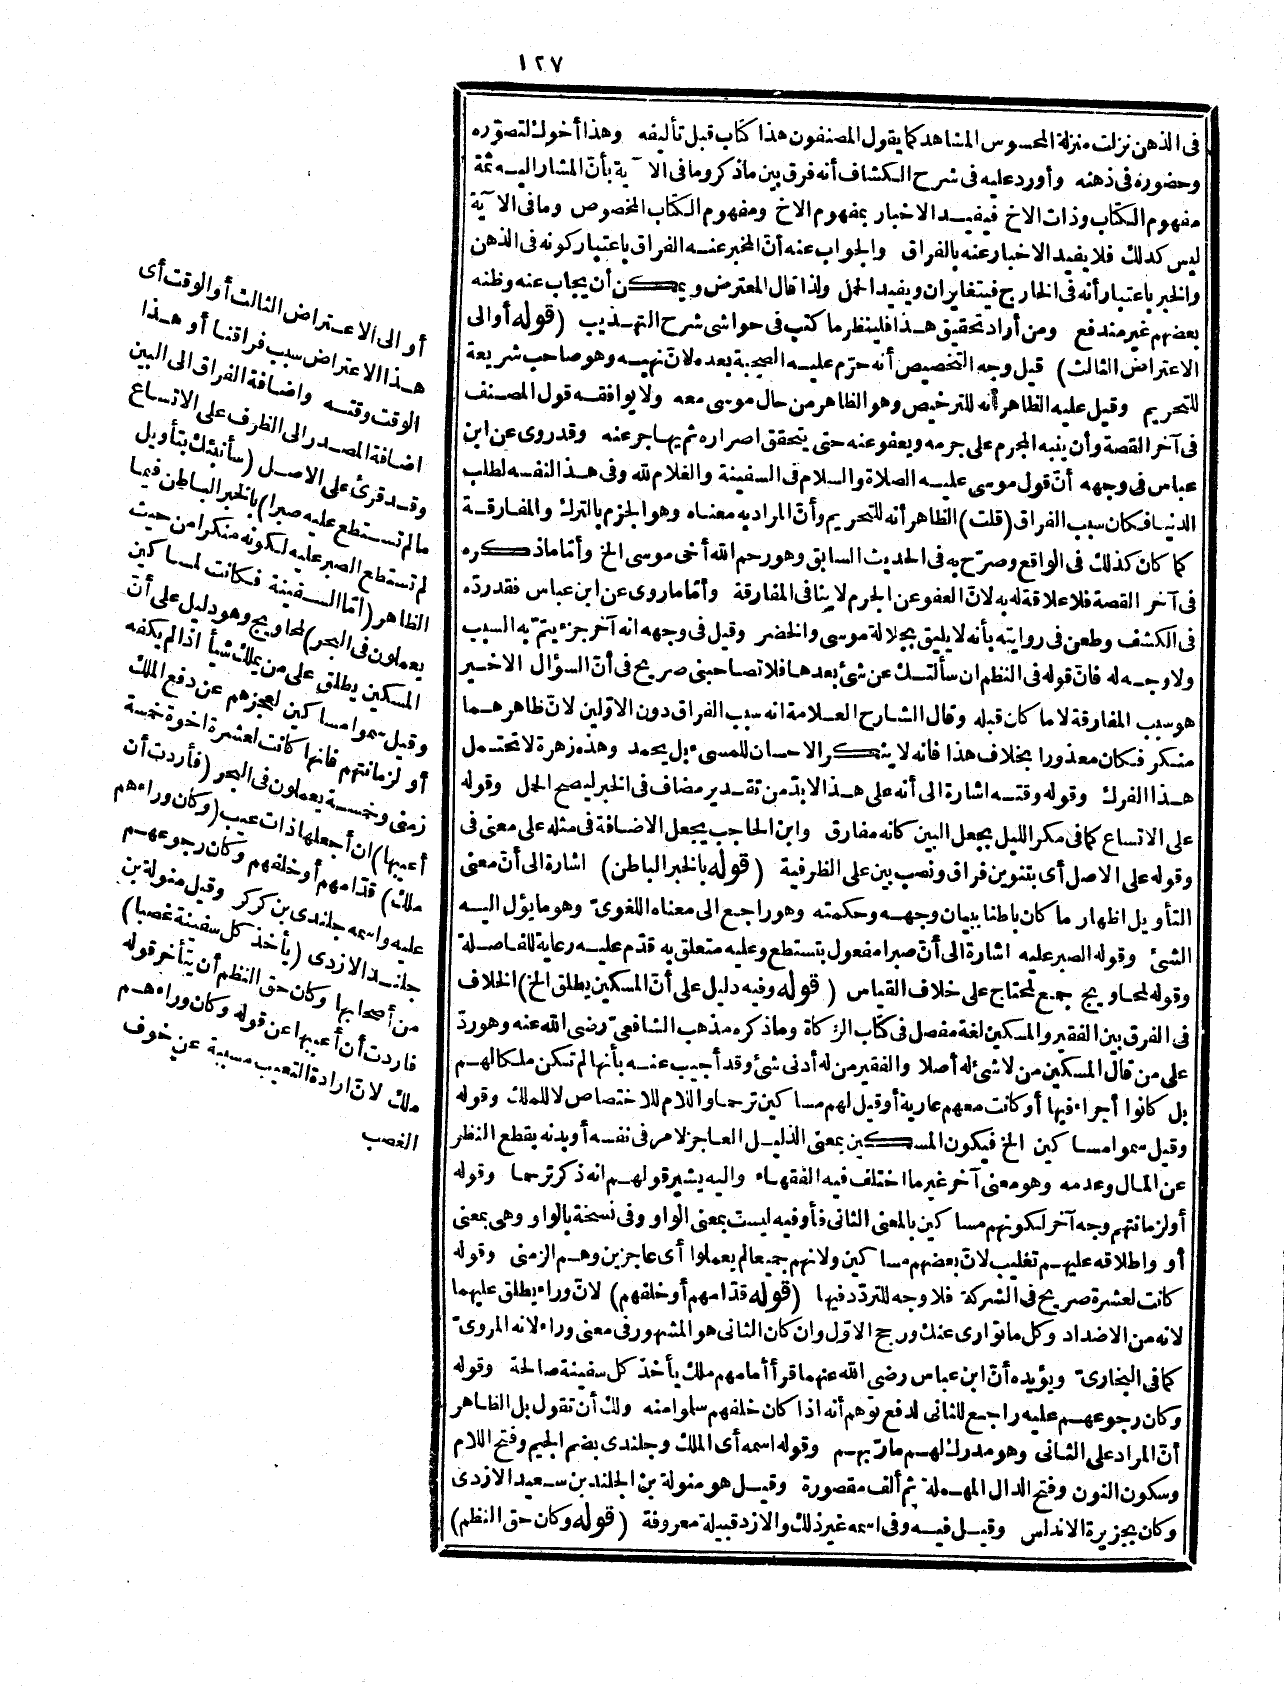 ١٢٧
فى الذهن نزلت منزلة المحسوس المشاهد كما يقول المصنفون هذا كتاب قبل تأليفه وهذا أخوك لتصوّره
وحضوره فى ذهنه وأورد عليه فى شرح الكشاف أنه فرق بين ماذكر وما فى الا ية بأن المشار اليه ثمة
مفهوم الكتاب وذات الاخ فيفيد الاخبار بمفهوم الاخ ومفهوم الكتاب المخصوص وما فى الا ية
ليس كذلك فلا يفيد الاخبار عنه بالفراق والجواب عنه أنّ المخبر عنه الفراق باعتبار كونه فى الذهن
والخبر باعتبار أنه فى الخارج فيتغايران ويفيد الحمل ولذا قال المعترض ويمكن أن يجاب عنه وظنه
بعضهم غير مندفع ومن أراد تحقيق هذا فلينظر ما كتب فى حواشى شرح التهذيب (قوله أو الى
الاعتراض الثالث) قيل وجه التخصيص أنه حرّم عليه الصحبة بعده لانّ نهيه وهو صاحب شريعة
للتحريم وقيل عليه الظاهر أنه للترخيص وهو الظاهر من حال موسى معه ولا يوافقه قول المصنف
فى آخر القصة وأن ينبه المجرم على جرمه ويعفو عنه حتى يتحقق اصراره ثم يهاجر عنه وقد روى عن ابن
عباس فى وجهه أنّ قول موسى عليه الصلاة والسلام فى السفينة والغلام لله وفى هذا لنفسه لطلب
الدنيا فكان سبب الفراق (قلت) الظاهر أنه للتحريم وأنّ المراد به معناه وهو الجزم بالترك والمفارقة
كما كان كذلك فى الواقع وصرّح به فى الحديث السابق وهو رحم الله أخى موسى الخ وأمّا ما ذكره
فى آخر القصة فلا علاقة له به لانّ العفو عن الجرم لا ينافى المفارقة وأمّا ما روى عن ابن عباس فقد ردّه
فى الكشف وطعن فى روايته بأنه لا يليق بجلالة موسى والخضر وقيل فى وجهه انه آخر جزء يتمّ به السبب
ولا وجه له فانّ قوله فى النظم ان سألتك عن شئ بعدها فلا تصاحبنى صريح فى أنّ السؤال الاخير
هو سبب المفارقة لا ما كان قبله وقال الشارح العلامة انه سبب الفراق دون الاوّلين لانّ ظاهرهما
منكر فكان معذورا بخلاف هذا فانه لا ينكر الاحسان للمسىء بل يحمد وهذه زهرة لا تحتمل
هذا الفرك وقوله وقته اشارة الى أنه على هذا لا بدّ من تقدير مضاف فى الخبر ليصح الحمل وقوله
على الاتساع كما فى مكر الليل يجعل البين كانه مفارق وابن الحاجب يجعل الاضافة فى مثله على معنى فى
وقوله على الاصل أى بتنوين فراق ونصب بين على الظرفية (قوله بالخبر الباطن) اشارة الى أنّ معنى
التأويل اظهار ما كان باطنا ببيان وجهه وحكمته وهو راجع الى معناه اللغوىّ وهو ما يؤل اليه
الشئ وقوله الصبر عليه اشارة الى أنّ صبرا مفعول بتستطع وعليه متعلق به قدّم عليه رعاية للفاصلة
وقوله لمحاويج جمع لمحتاج على خلاف القياس (قوله وفيه دليل على أنّ المسكين يطلق الخ) الخلاف
فى الفرق بين الفقير والمسكين لغة مفصل فى كتاب الزكاة وما ذكره مذهب الشافعىّ رضى الله عنه وهو ردّ
على من قال المسكين من لا شئ له أصلا والفقير من له أدنى شئ وقد أجيب عنه بأنها لم تكن ملكا لهم
بل كانوا أجراء فيها أو كانت معهم عارية أو قيل لهم مساكين ترحما واللام للاختصاص لا للملك وقوله
وقيل سموا مساكين الخ فيكون المسكين بمعنى الذليل العاجز لامر فى نفسه أو بدنه بقطع النظر
عن المال وعدمه وهو معنى آخر غير ما اختلف فيه الفقهاء واليه يشير قولهم انه ذكر ترحما وقوله
أو لزمانتهم وجه آخر لكونهم مساكين بالمعنى الثانى فأو فيه ليست بمعنى الواو وفى نسخة بالواو وهى بمعنى
أو واطلاقه عليهم تغليب لانّ بعضهم مساكين ولانهم جميعا لم يعملوا أى عاجزين وهم الزمنى وقوله
كانت لعشرة صريح فى الشركة فلا وجه للتردّد فيها (قوله قدّامهم أو خلفهم) لانّ وراء يطلق عليهما
لانه من الاضداد وكل ما توارى عنك ورجح الاوّل وان كان الثانى هو المشهور فى معنى وراء لانه المروىّ
كما فى البخارىّ ويؤيده أنّ ابن عباس رضى الله عنهما قرأ أمامهم ملك يأخذ كل سفينة صالحة وقوله
وكان رجوعهم عليه راجع للثانى لدفع توهم أنه اذا كان خلفهم سلموا منه ولك أن تقول بل الظاهر
أنّ المراد على الثانى وهو مدرك لهم مارّ بهم وقوله اسمه أى الملك وجلندى بضم الجيم وفتح اللام
وسكون النون وفتح الدال المهملة ثم ألف مقصورة وقيل هو منولة بن الجلند بن سعيد الازدى
وكان بجزيرة الاندلس وقيل فيه وفى اسمه غير ذلك والازد قبيلة معروفة (قوله وكان حق النظم)
أو الى الاعتراض الثالث أو الوقت أى
هذا الاعتراض سبب فراقنا أو هذا
الوقت وقته واضافة الفراق الى البين
اضافة المصدر الى الظرف على الاتساع
وقد قرئ على الاصل (سأنبئك بتأويل
ما لم تستطع عليه صبرا) بالخبر الباطن فيما
لم تستطع الصبر عليه لكونه منكرا من حيث
الظاهر (امّا السفينة فكانت لمساكين
يعملون فى البحر) لمحاويج وهو دليل على أنّ
المسكين يطلق على من يملك شيأ اذا لم يكفه
وقيل سموا مساكين لعجزهم عن دفع الملك
أو لزمانتهم فانها كانت لعشرة اخوة خمسة
زمنى وخمسة يعملون فى البحر (فأردت أن
أعيبها) ان أجعلها ذات عيب (وكان وراءهم
ملك) قدّامهم أو خلفهم وكان رجوعهم
عليه واسمه جلندى بن كركر وقيل منولة بن
جلند الازدى (يأخذ كل سفينة غصبا)
من أصحابها وكان حق النظم أن يتأخر قوله
فاردت أن أعيبها عن قوله وكان وراءهم
ملك لانّ ارادة التعيب مسببة عن خوف
الغصب